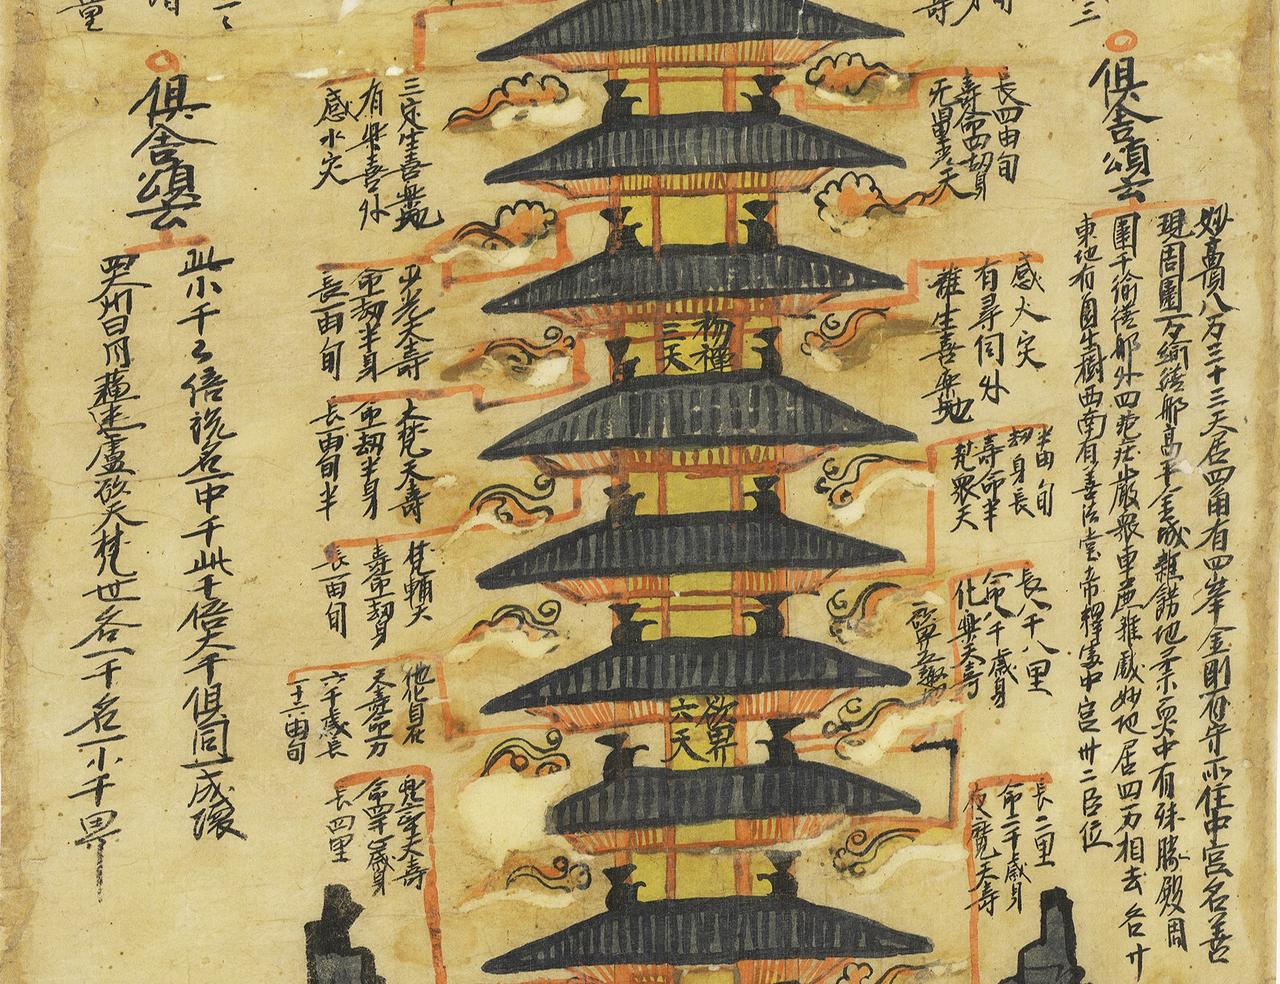 俱舍頌云
妙高頂八万三十三天居四角有四峯金剛有守所住中宮名善
現周圍万踰繕那高半金城雜飾地柔耎中有殊勝殿周
圍千踰繕那外四苑莊嚴衆車麁雜戲妙地居四方相去各廿
東北有圓生樹西南有善法堂帝釋處中宮卅二臣位
長四由旬
壽命四劫身
无量光天
感火灾
有尋伺外
離生喜樂地
半由旬
劫身長
壽命半
梵眾天
長八千八里
命八千歲身
化樂天壽
欲界五趣地
長二里
命二千歲身
夜魔天壽
初禪
三天
欲界
六天
三定生喜樂地
有樂喜外
感水灾
少光天壽
命劫半身
長一由旬
大梵天壽
命劫半身
長一由旬半
梵輔天
壽命一劫身
長一由旬
他化自在
天壽命万
六千歲長
一十二由旬
兜率天壽
命四千歲身
長四里
俱舍頌云
此小千千倍說名一中千此千倍大千俱同一成壞
四大州日月蘇迷盧欲天梵世各一千名一小千界